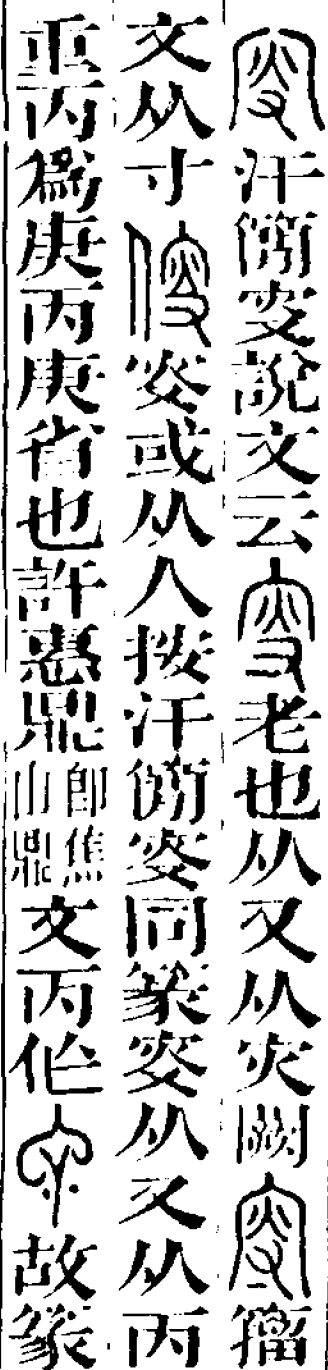 叜汗簡叜說文云叜老也从又从灾闕籀
文从寸傁叜或从人按汗簡叜同篆叜从又从丙
重丙為庚丙庚省也許惠鼎即焦山鼎文丙作故篆